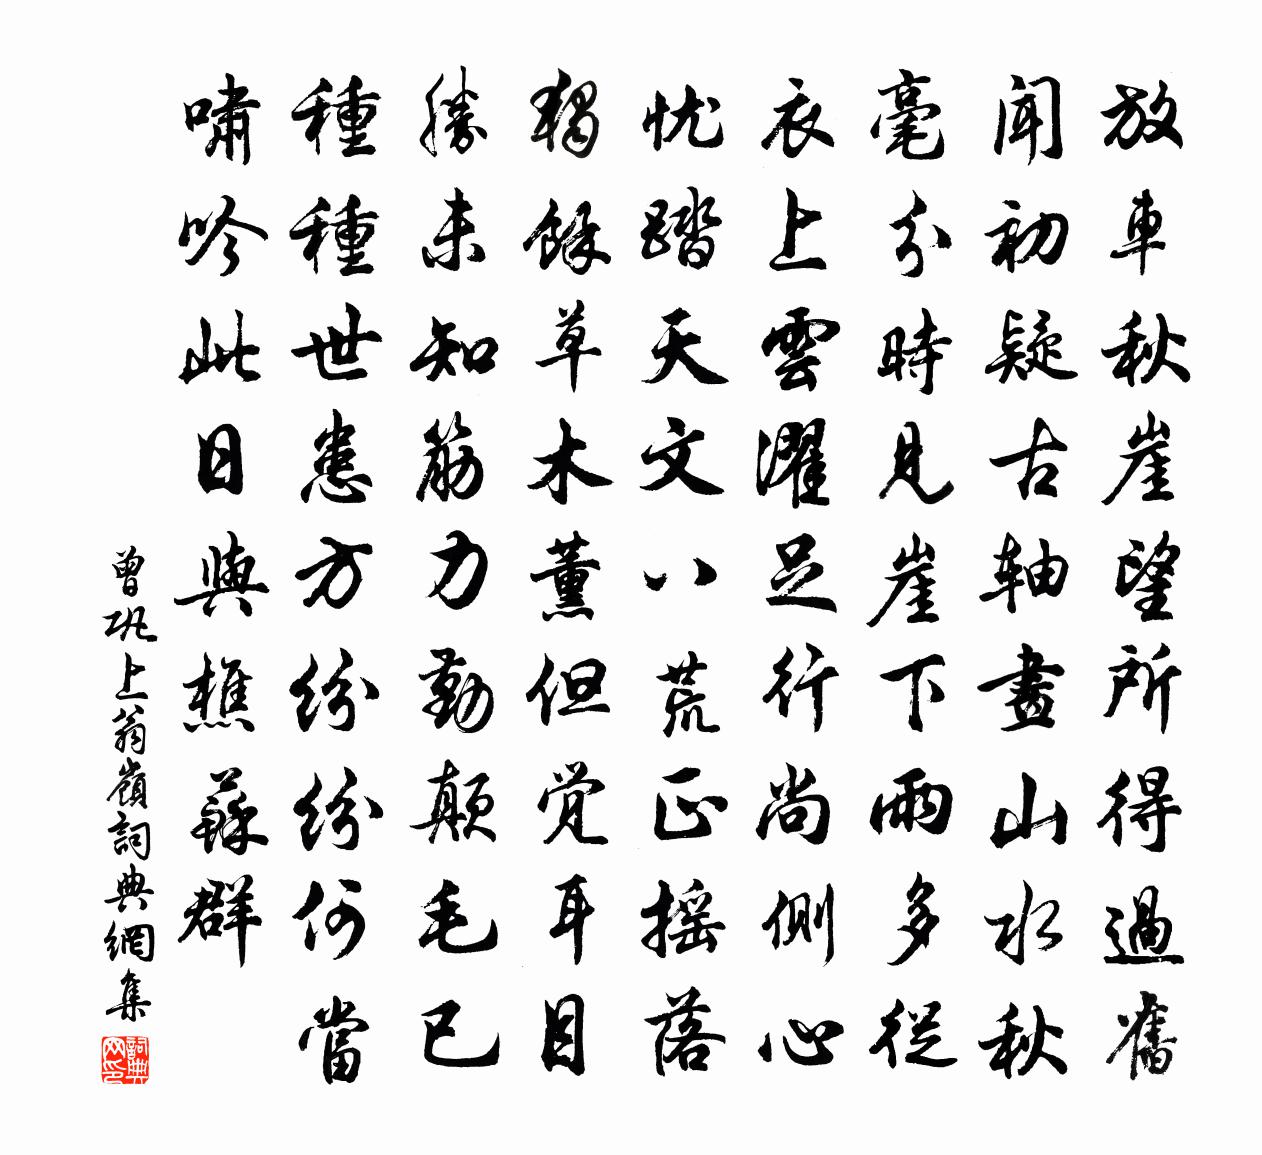 放車秋崖望所得過舊
聞初疑古軸畫山水秋
毫分時見崖下雨多從
衣上雲濯足行尚側心
忧踏天文八荒正摇落
獨餘草木薰但覚耳目
勝未知筋力勤顛毛已
種種世患方紛紛何當
嘯吟此日與樵蘇群
曾巩上翁嶺詞典網集
詞典网印